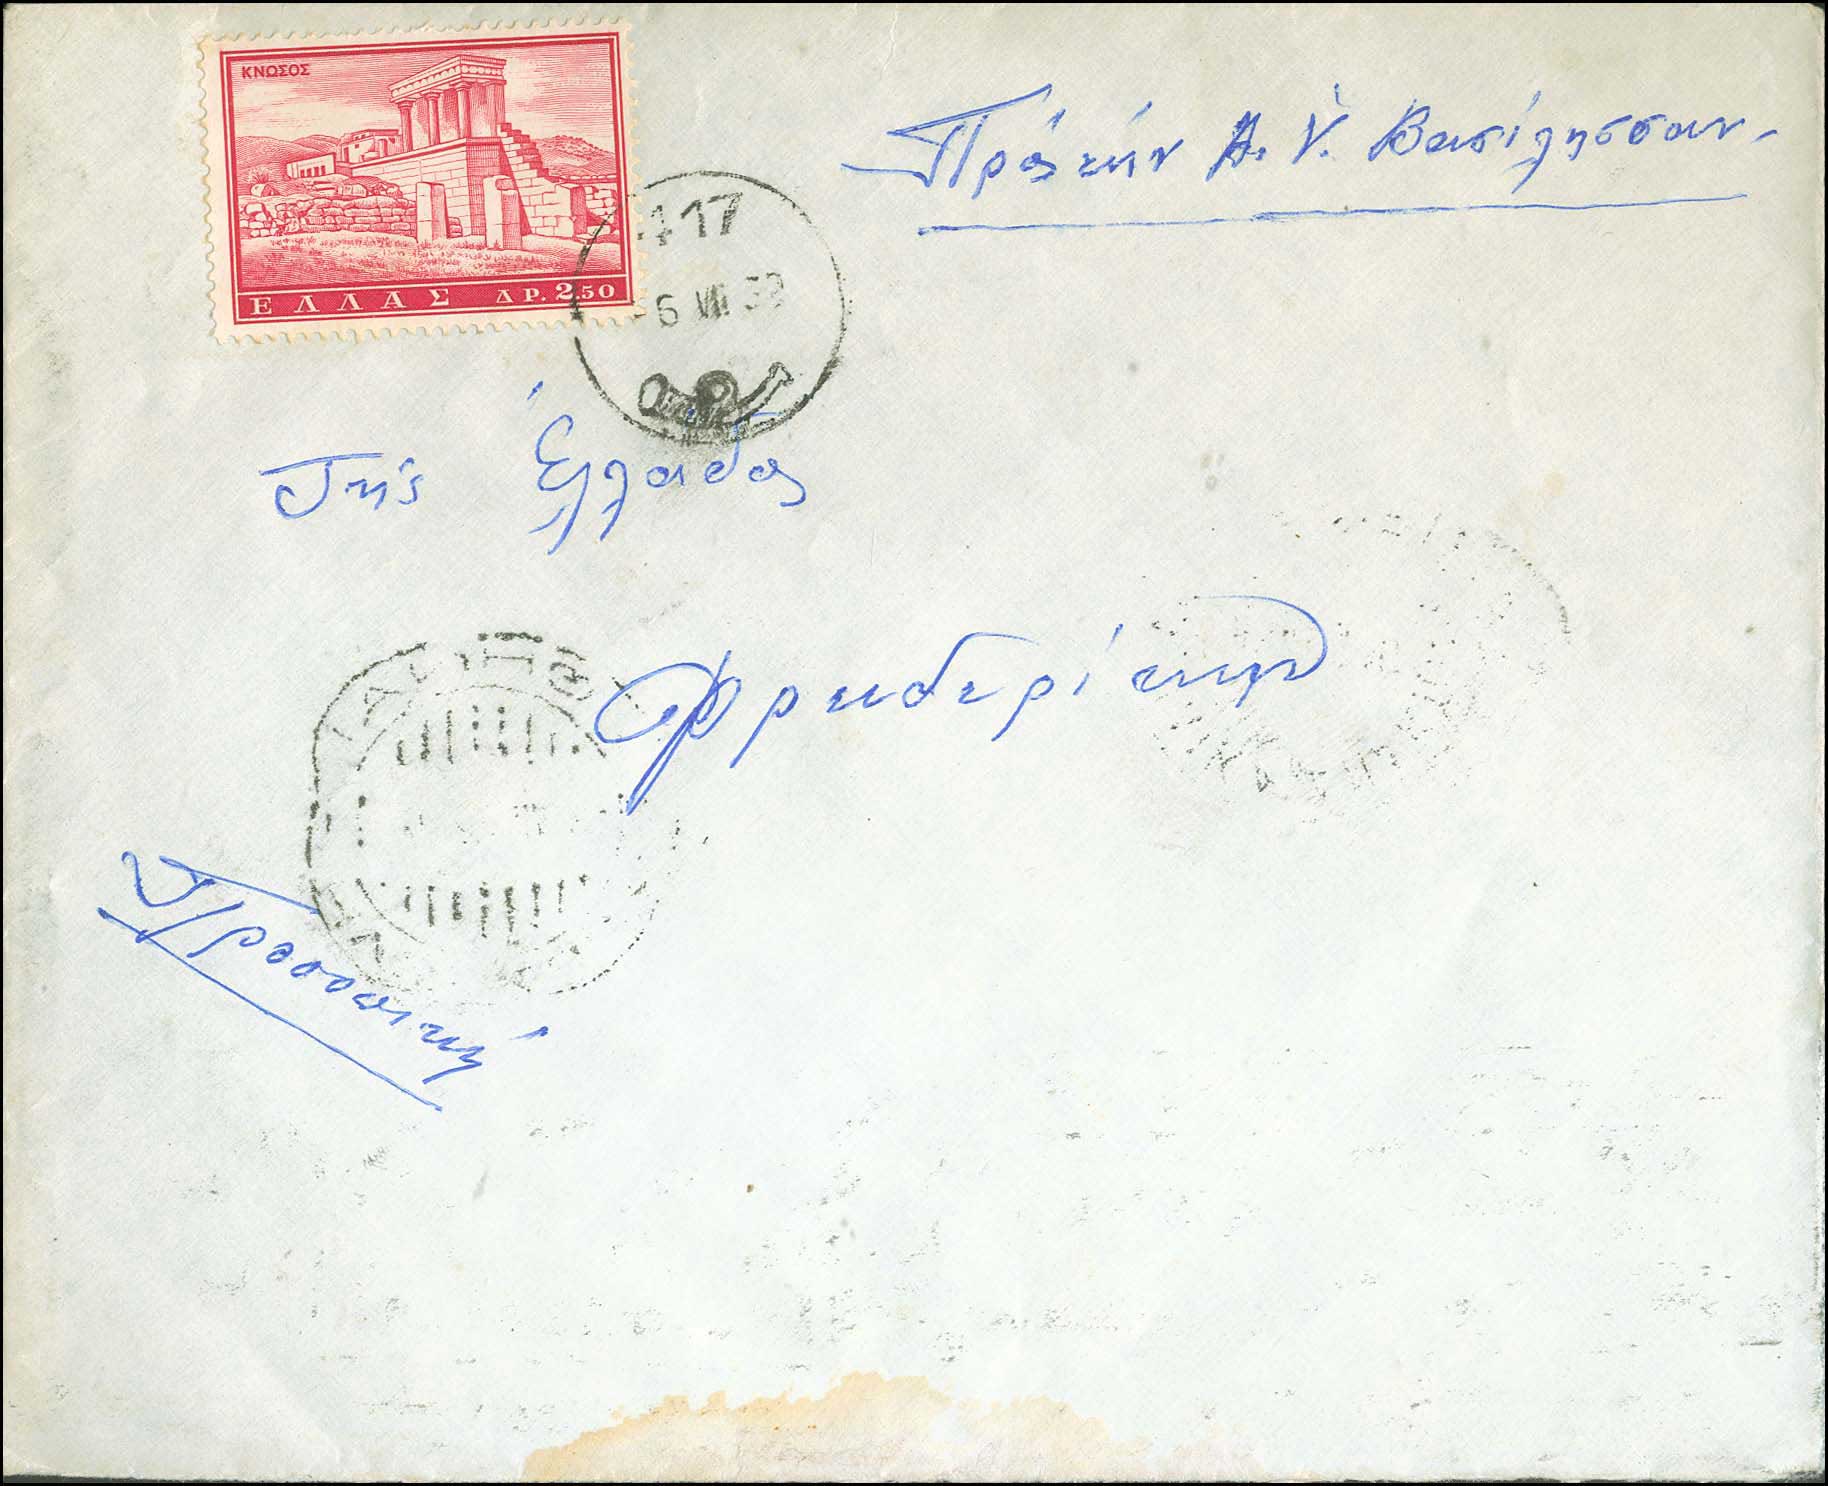 ΚΝΩΣΟΣ
ΕΛΛΑΣ ΔΡ. 2.50
417
6 VII
Πρός τήν Α. Υ. Βασίλησσαν.
Τής Ἑλλαδος
Φρειδερίκην
Προσοπική